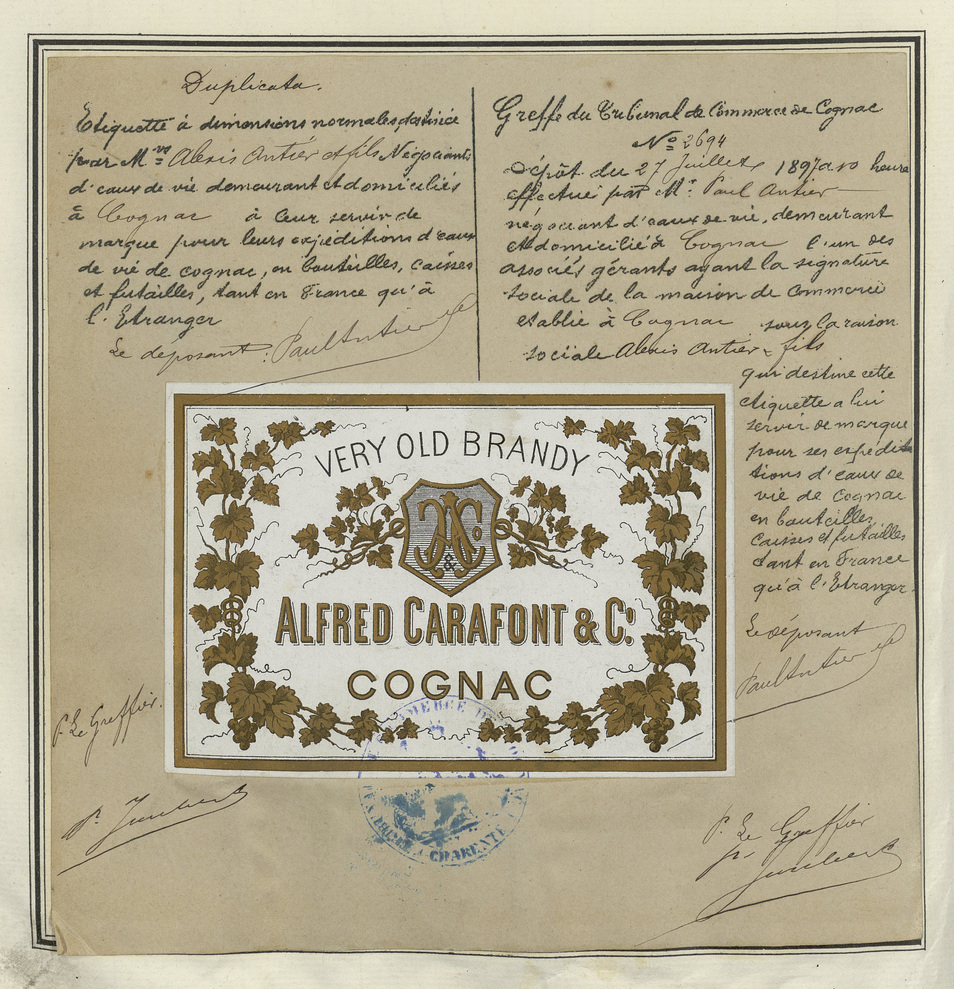 Duplicata.
Etiquette à dimensions normales, destinée
par Mrs Alexis Antier et fils Négociants
d'eaux de vie demeurant et domiciliés
à Cognac à leur servir de
marque pour leurs expéditions d'eaux
de vie de cognac, en bouteilles, caisses
et futailles, tant en France qu'à
l'Etranger
Le déposant. Paul Antier
Greffe du Tribunal de Commerce de Cognac
No 2694
Dépôt du 27 Juillet 1897 a 10 heures
effectué par Mr Paul Antier
négociant d'eaux de vie, demeurant
et domicilié à Cognac l'un des
associés gérants ayant la signature
sociale de la maison de Commerce
etablie à Cognac sous la raison
sociale Alexis Antier & fils
qui destine cette
etiquette a lui
servir de marque
pour ses expédi
tions d'eaux de
vie de Cognac
en bouteilles,
caisses et futailles
tant en France
qu'à l'Etranger.
Le déposant
Paul Antier
VERY OLD BRANDY
A&Co
ALFRED CARAFONT & Co.
COGNAC
P. Le Greffier.
COMMERCE D
CHARENTE
P. Le Greffier